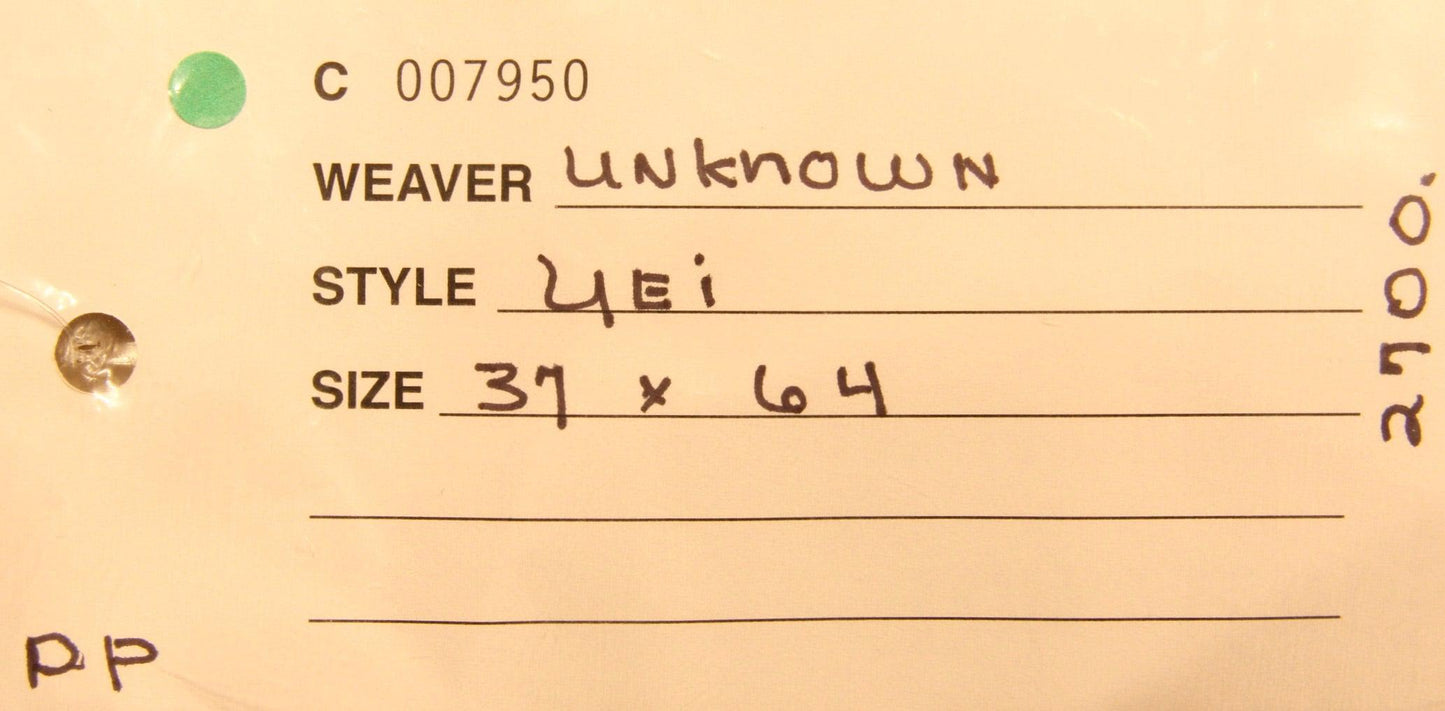 C 007950
WEAVER UNKNOWN
STYLE YEi
SIZE 37 x 64
2700.
PP